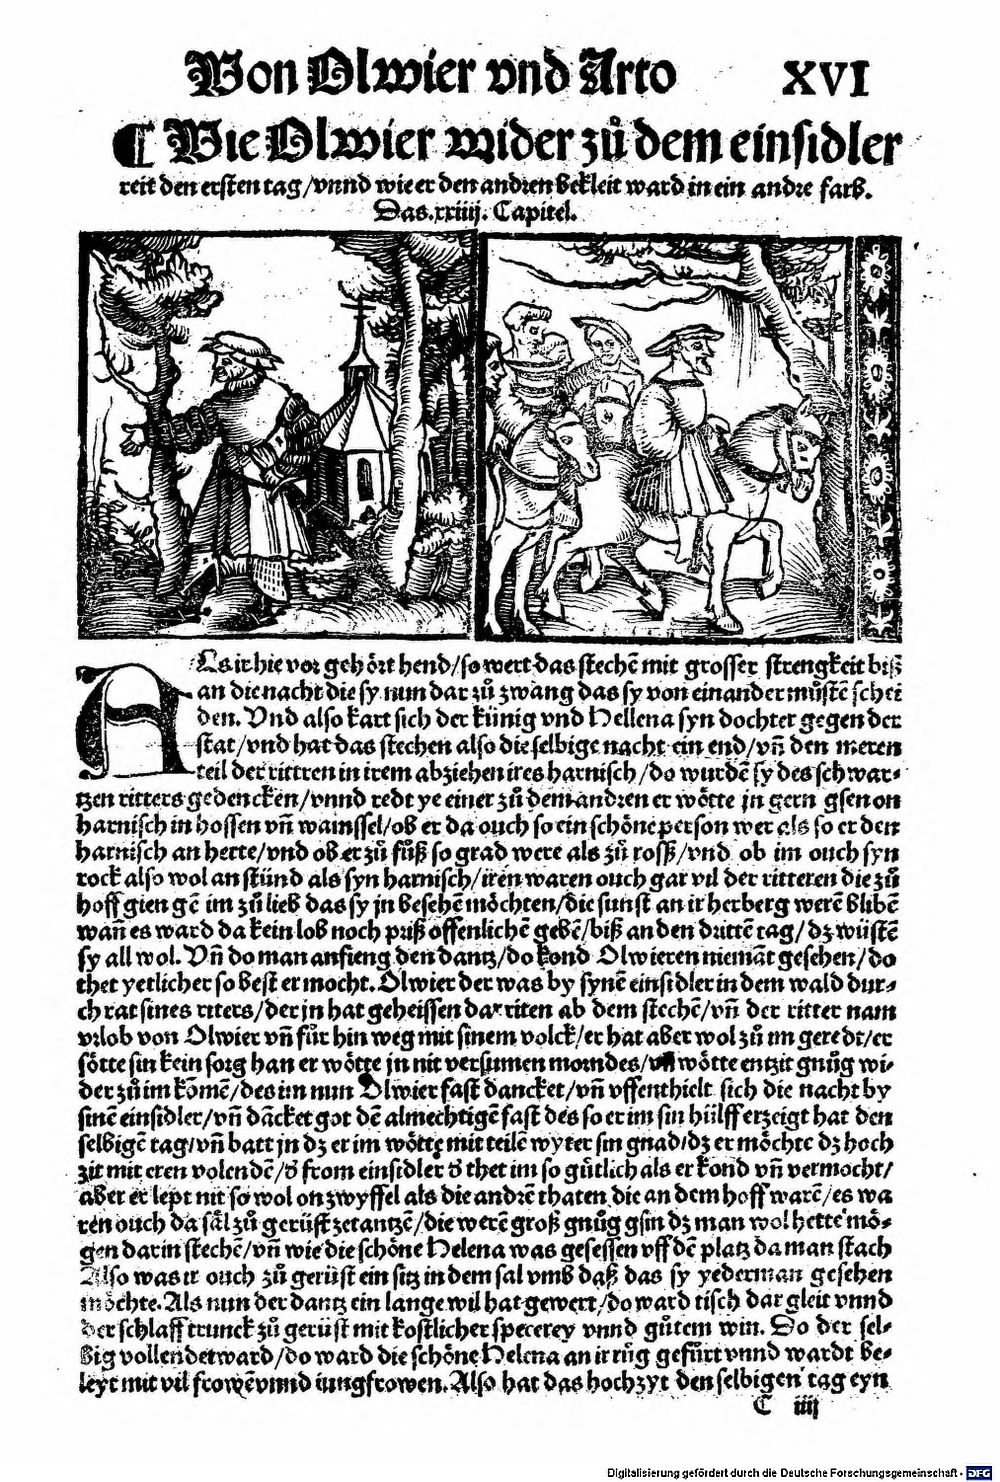 Von Olwier vnd Arto XVI
¶ Wie Olwier wider zů dem einsidler
reit den ersten tag/vnnd wie er den andren bekleit ward in ein andre farb.
Das .xxiiij. Capitel.
ALs ir hie vor gehört hend/so wert das stechē mit grosser strengkeit biß
an die nacht die sy nun dar zů zwang das sy von einander můstē schei
den. Vnd also kart sich der künig vnd Hellena syn dochter gegen der
stat/vnd hat das stechen also die selbige nacht ein end/vñ den meren
teil der rittren in irem abziehen ires harnisch/do wurdē sy des schwar⸗
tzen ritters gedencken/vnnd redt ye einer zů dem andren er wötte jn gern gsen on
harnisch in hossen vñ wamssel/ob er da ouch so ein schöne person wer als so er den
harnisch an hette/vnd ob er zů fůß so grad were als zů rosß/vnd ob im ouch syn
rock also wol an stünd als syn harnisch/iren waren ouch gar vil der ritteren die zů
hoff giengē im zů lieb das sy jn besehē möchten/die sunst an ir herberg werē blibē
wañ es ward da kein lob noch priß offenlichē gebē/biß an den drittē tag/dz wüstē
sy all wol. Vñ do man anfieng den dantz/do kond Olwieren niemāt gesehen/do
thet yetlicher so best er mocht. Olwier der was by synē einsidler in dem wald dur⸗
ch rat sines riters/der jn hat geheissen dar riten ab dem stechē/vñ der ritter nam
vrlob von Olwier vñ fůr hin weg mit sinem volck/er hat aber wol zů im geredt/er
sötte sin kein sorg han er wötte jn nit versumen morndes/vñ wötte entzit gnůg wi⸗
der zů im kōmē/des im nun Olwier fast dancket/vñ vffenthielt sich die nacht by
sinē einsidler/vñ dācket got dē almechtigē fast des so er im sin hülff erzeigt hat den
selbigē tag/vñ batt jn dz er im wötte mit teilē wyter sin gnad/dz er möchte dz hoch
zit mit eren volendē/d̓ from einsidler d̓ thet im so gůtlich als er kond vñ vermocht/
aber er lept nit so wol on zwyffel als die andrē thaten die an dem hoff warē/es wa
ren ouch da säl zů gerüst ze tantzē/die werē groß gnůg gsin dz man wol hette mö⸗
gen darin stechē/vñ wie die schöne Helena was gesessen vff dē platz da man stach
Also was ir ouch zů gerüst ein sitz in dem sal vmb daß das sy yederman gesehen
möchte. Als nun der dantz ein lange wil hat gewert/do ward tisch dar gleit vnnd
der schlaff trunck zů gerüst mit kostlicher specerey vnnd gůtem win. Do der sel⸗
big vollendet ward/do ward die schöne Helena an ir růg gefürt vnnd wardt be⸗
leyt mit vil frowē vnnd iungfrowen. Also hat das hochzyt den selbigen tag eyn
C iiij
Digitalisierung gefördert durch die Deutsche Forschungsgemeinschaft - DFG